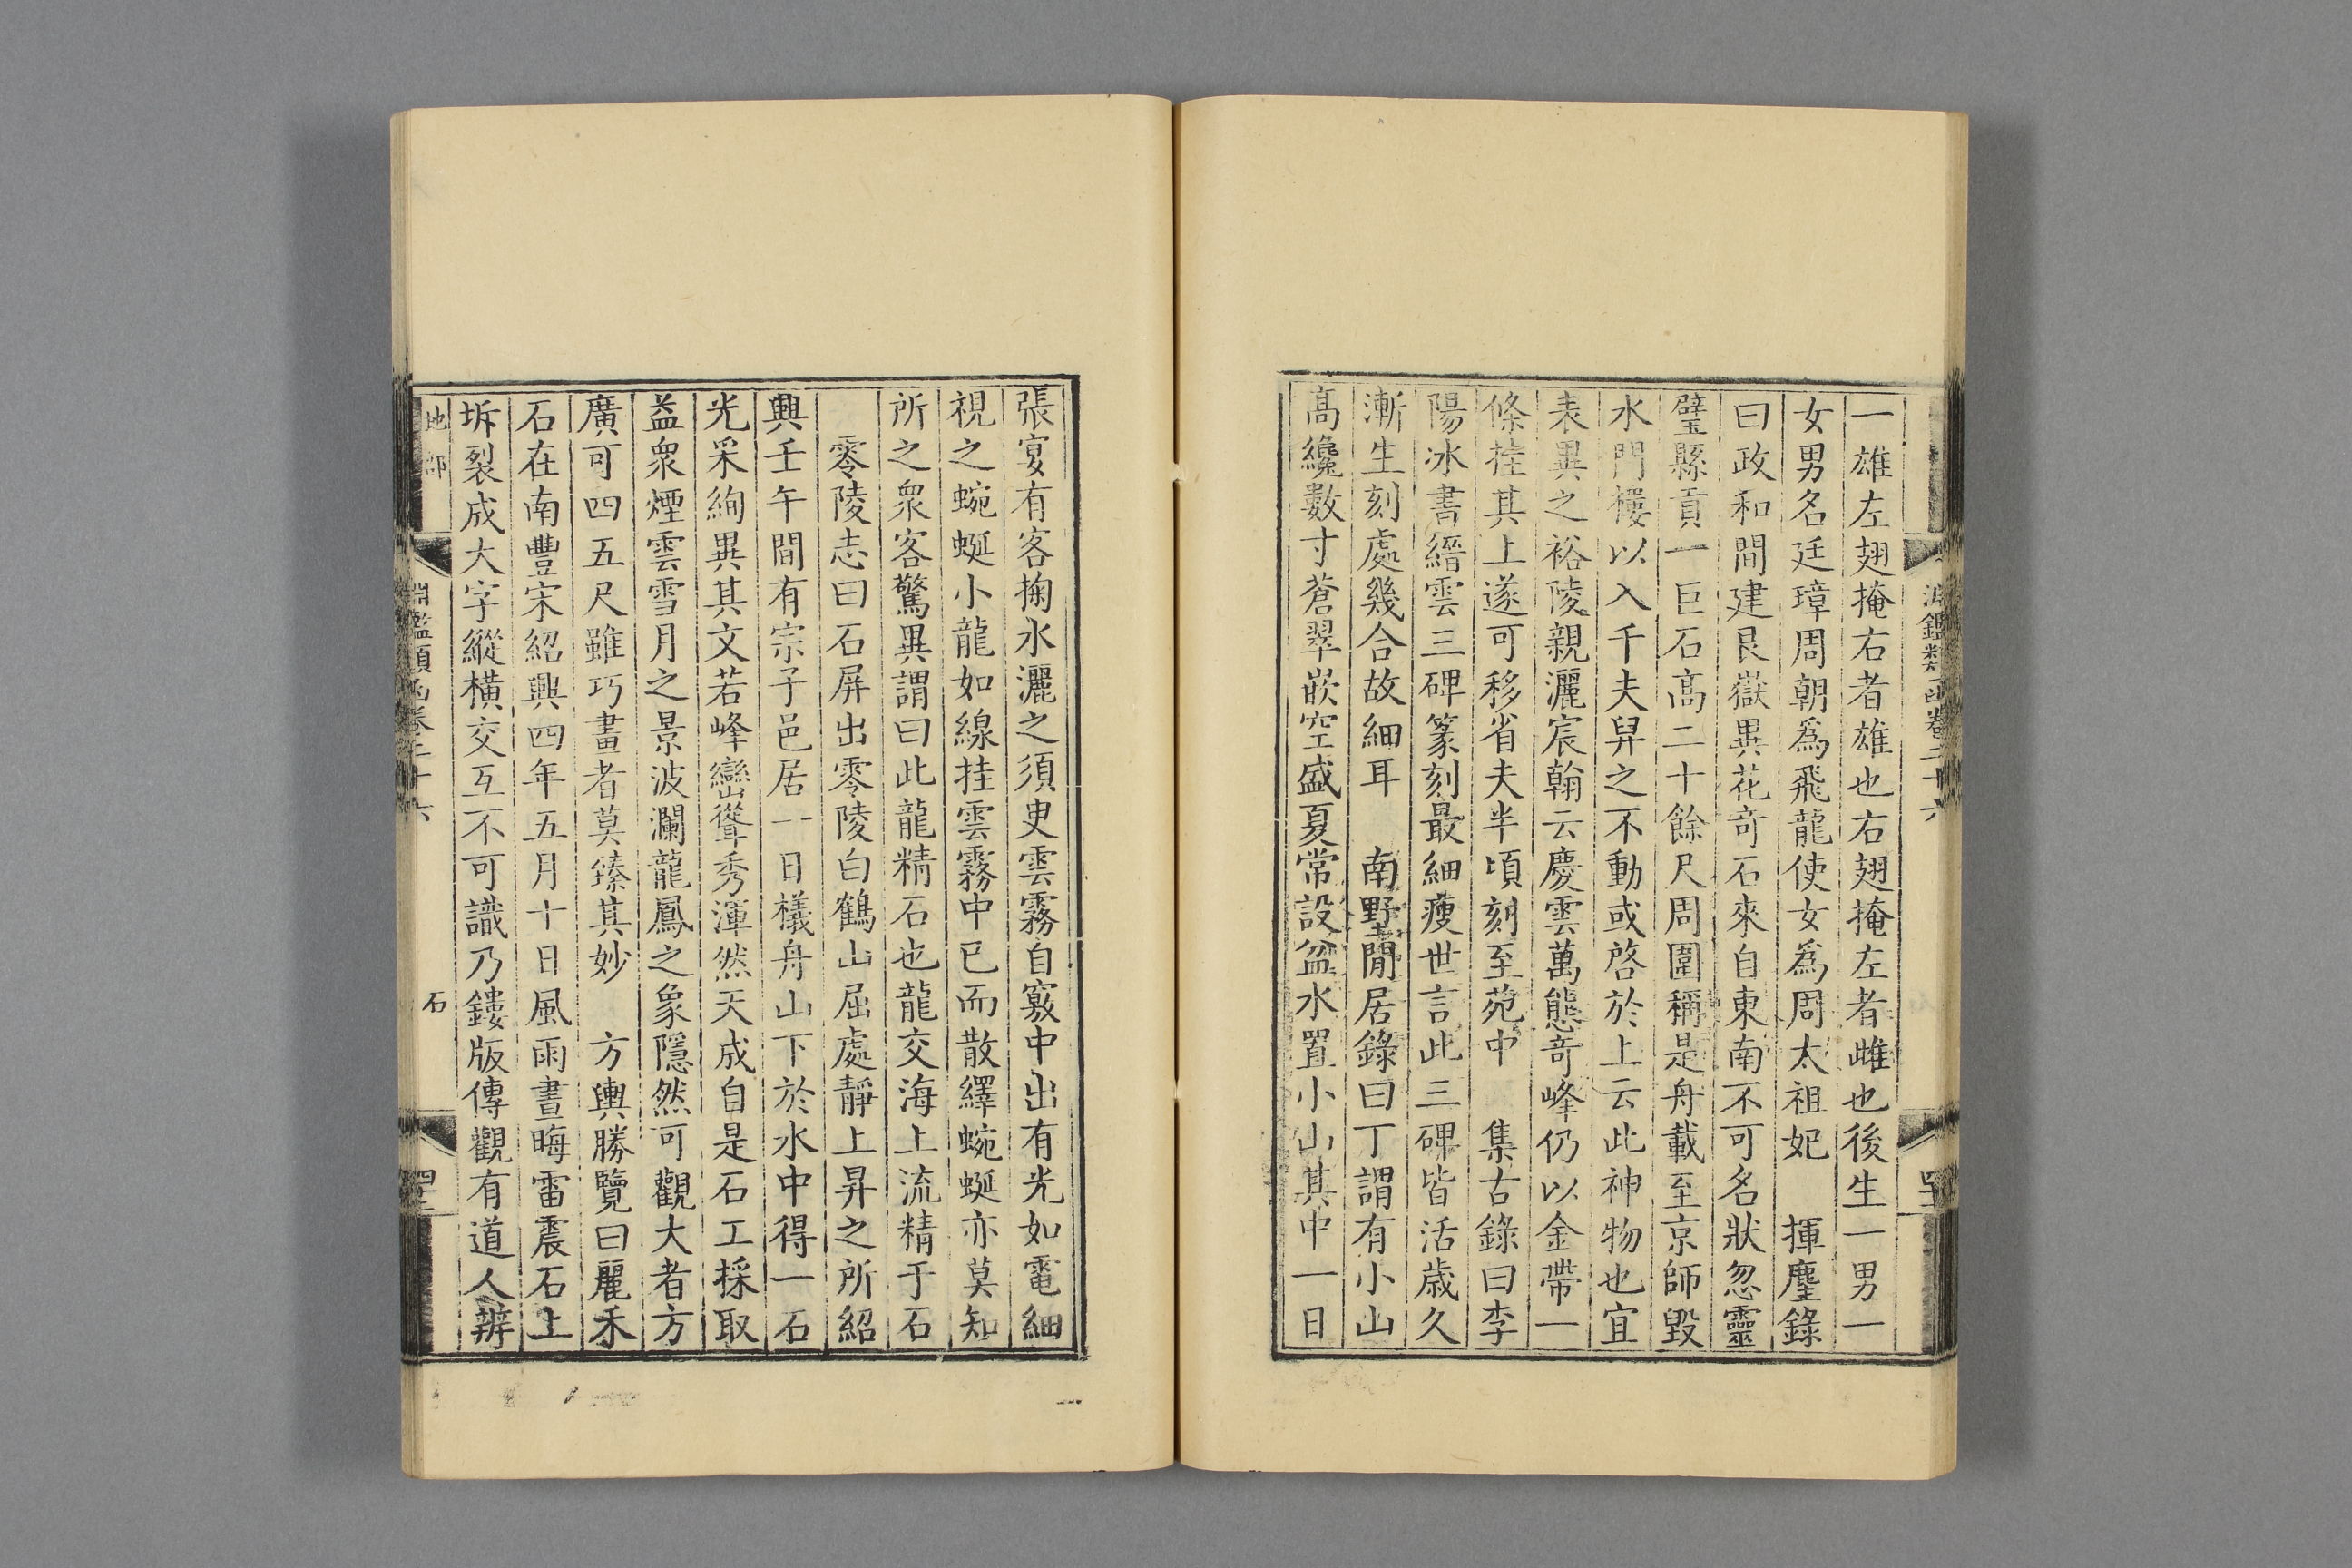 一雄左翅掩右者雄也右翅掩左者雌也後生一男一
女男名廷璋周朝爲飛龍使女爲周太祖妃　揮麈錄
曰政和間建艮嶽異花奇石來自東南不可名狀忽靈
璧縣貢一巨石高二十餘尺周圍稱是舟載至京師毀
水門樓以入千夫舁之不動或啓於上云此神物也宜
表異之裕陵親灑宸翰云慶雲萬態奇峰仍以金帶一
條挂其上遂可移省夫半頃刻至苑中　集古錄曰李
陽冰書縉雲三碑篆刻最細瘦世言此三碑皆活歲久
漸生刻處幾合故細耳　南墅閒居錄曰丁謂有小山
高纔數寸蒼翠嵌空盛夏常設盆水置小山其中一日
張宴有客掬水灑之須臾雲霧自竅中出有光如電細
視之蜿蜒小龍如線挂雲霧中已而散繹蜿蜒亦莫知
所之衆客驚異謂曰此龍精石也龍交海上流精于石
零陵志曰石屏出零陵白鶴山屈處靜上昇之所紹
興壬午間有宗子邑居一日檥舟山下於水中得一石
光采絢異其文若峰巒聳秀渾然天成自是石工採取
益衆煙雲雪月之景波瀾龍鳳之象隱然可觀大者方
廣可四五尺雖巧畫者莫臻其妙　方輿勝覽曰麗禾
石在南豐宋紹興四年五月十日風雨晝晦雷震石上
坼裂成大字縱橫交互不可識乃鏤版傳觀有道人辨
地部
淵鑑類函卷二十六
石